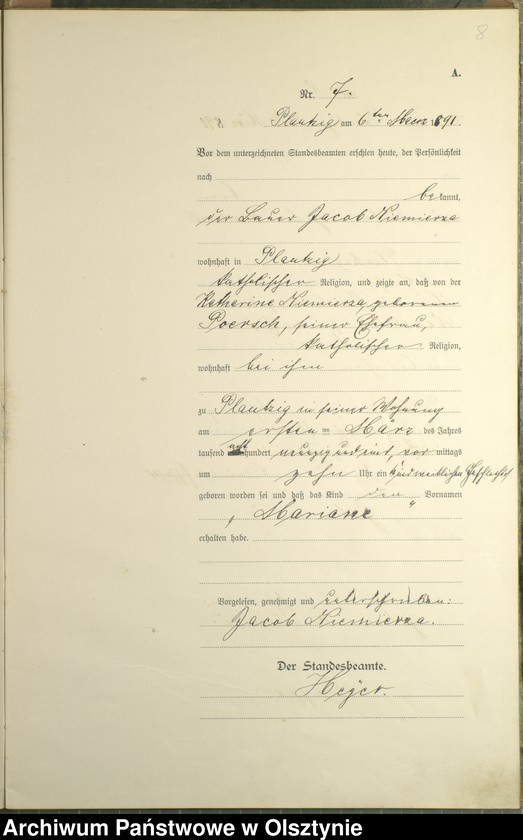 8
A.
Nr. 7.
Plautzig am 6ten Maerz 1891.
Vor dem unterzeichneten Standesbeamten erschien heute, der Persönlichkeit
nach
bekannt,
der Bauer Jacob Niemierza
wohnhaft in Plautzig
katholischer Religion, und zeigte an, daß von der
Katherine Niemierza, geborenen
Poersch, seiner Ehefrau,
katholischer Religion,
wohnhaft bei ihm
zu Plautzig in seiner Wohnung
am ersten März des Jahres
tausend acht hundert neunzig und eins, vor mittags
um zehn Uhr ein Kind weiblichen Geschlechts
geboren worden sei und daß das Kind den Vornamen
„Mariane"
erhalten habe.
Vorgelesen, genehmigt und unterschrieben:
Jacob Niemierza.
Der Standesbeamte.
Archiwum Państwowe w Olsztynie